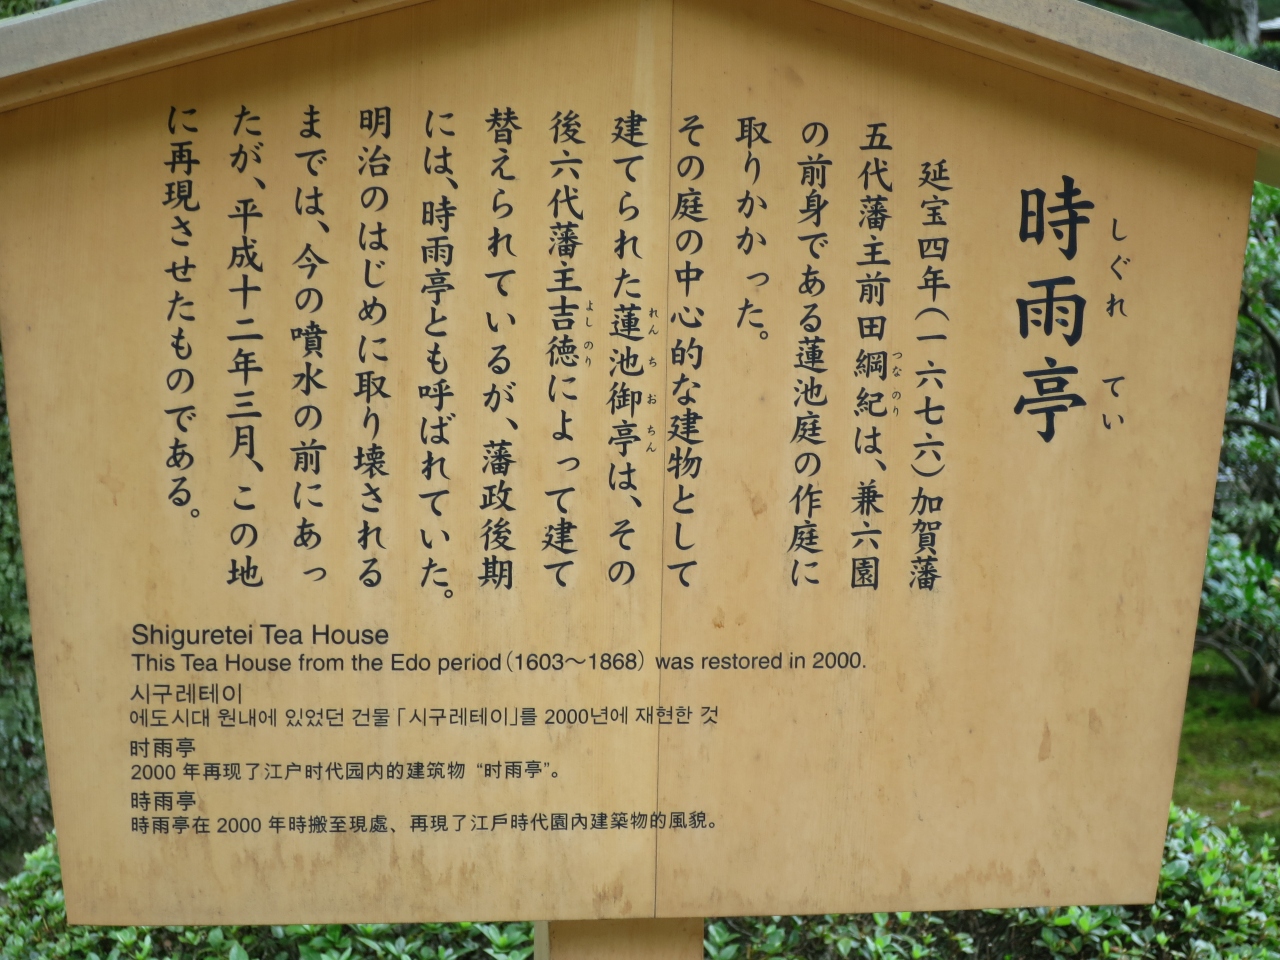 時雨亭
しぐれ てい
延宝四年(一六七六)加賀藩
五代藩主前田綱紀は、兼六園
つなのり
の前身である蓮池庭の作庭に
取りかかった。
その庭の中心的な建物として
建てられた蓮池御亭は、その
れんちおちん
後六代藩主吉徳によって建て
よしのり
替えられているが、藩政後期
には、時雨亭とも呼ばれていた。
明治のはじめに取り壊される
までは、今の噴水の前にあっ
たが、平成十二年三月、この地
に再現させたものである。
Shiguretei Tea House
This Tea House from the Edo period(1603〜1868) was restored in 2000.
시구레테이
에도시대 원내에 있었던 건물「시구레테이」를 2000년에 재현한 것
时雨亭
2000 年再现了江户时代园内的建筑物 “时雨亭”。
時雨亭
時雨亭在 2000 年時搬至現處、再現了江戶時代園內建築物的風貌。